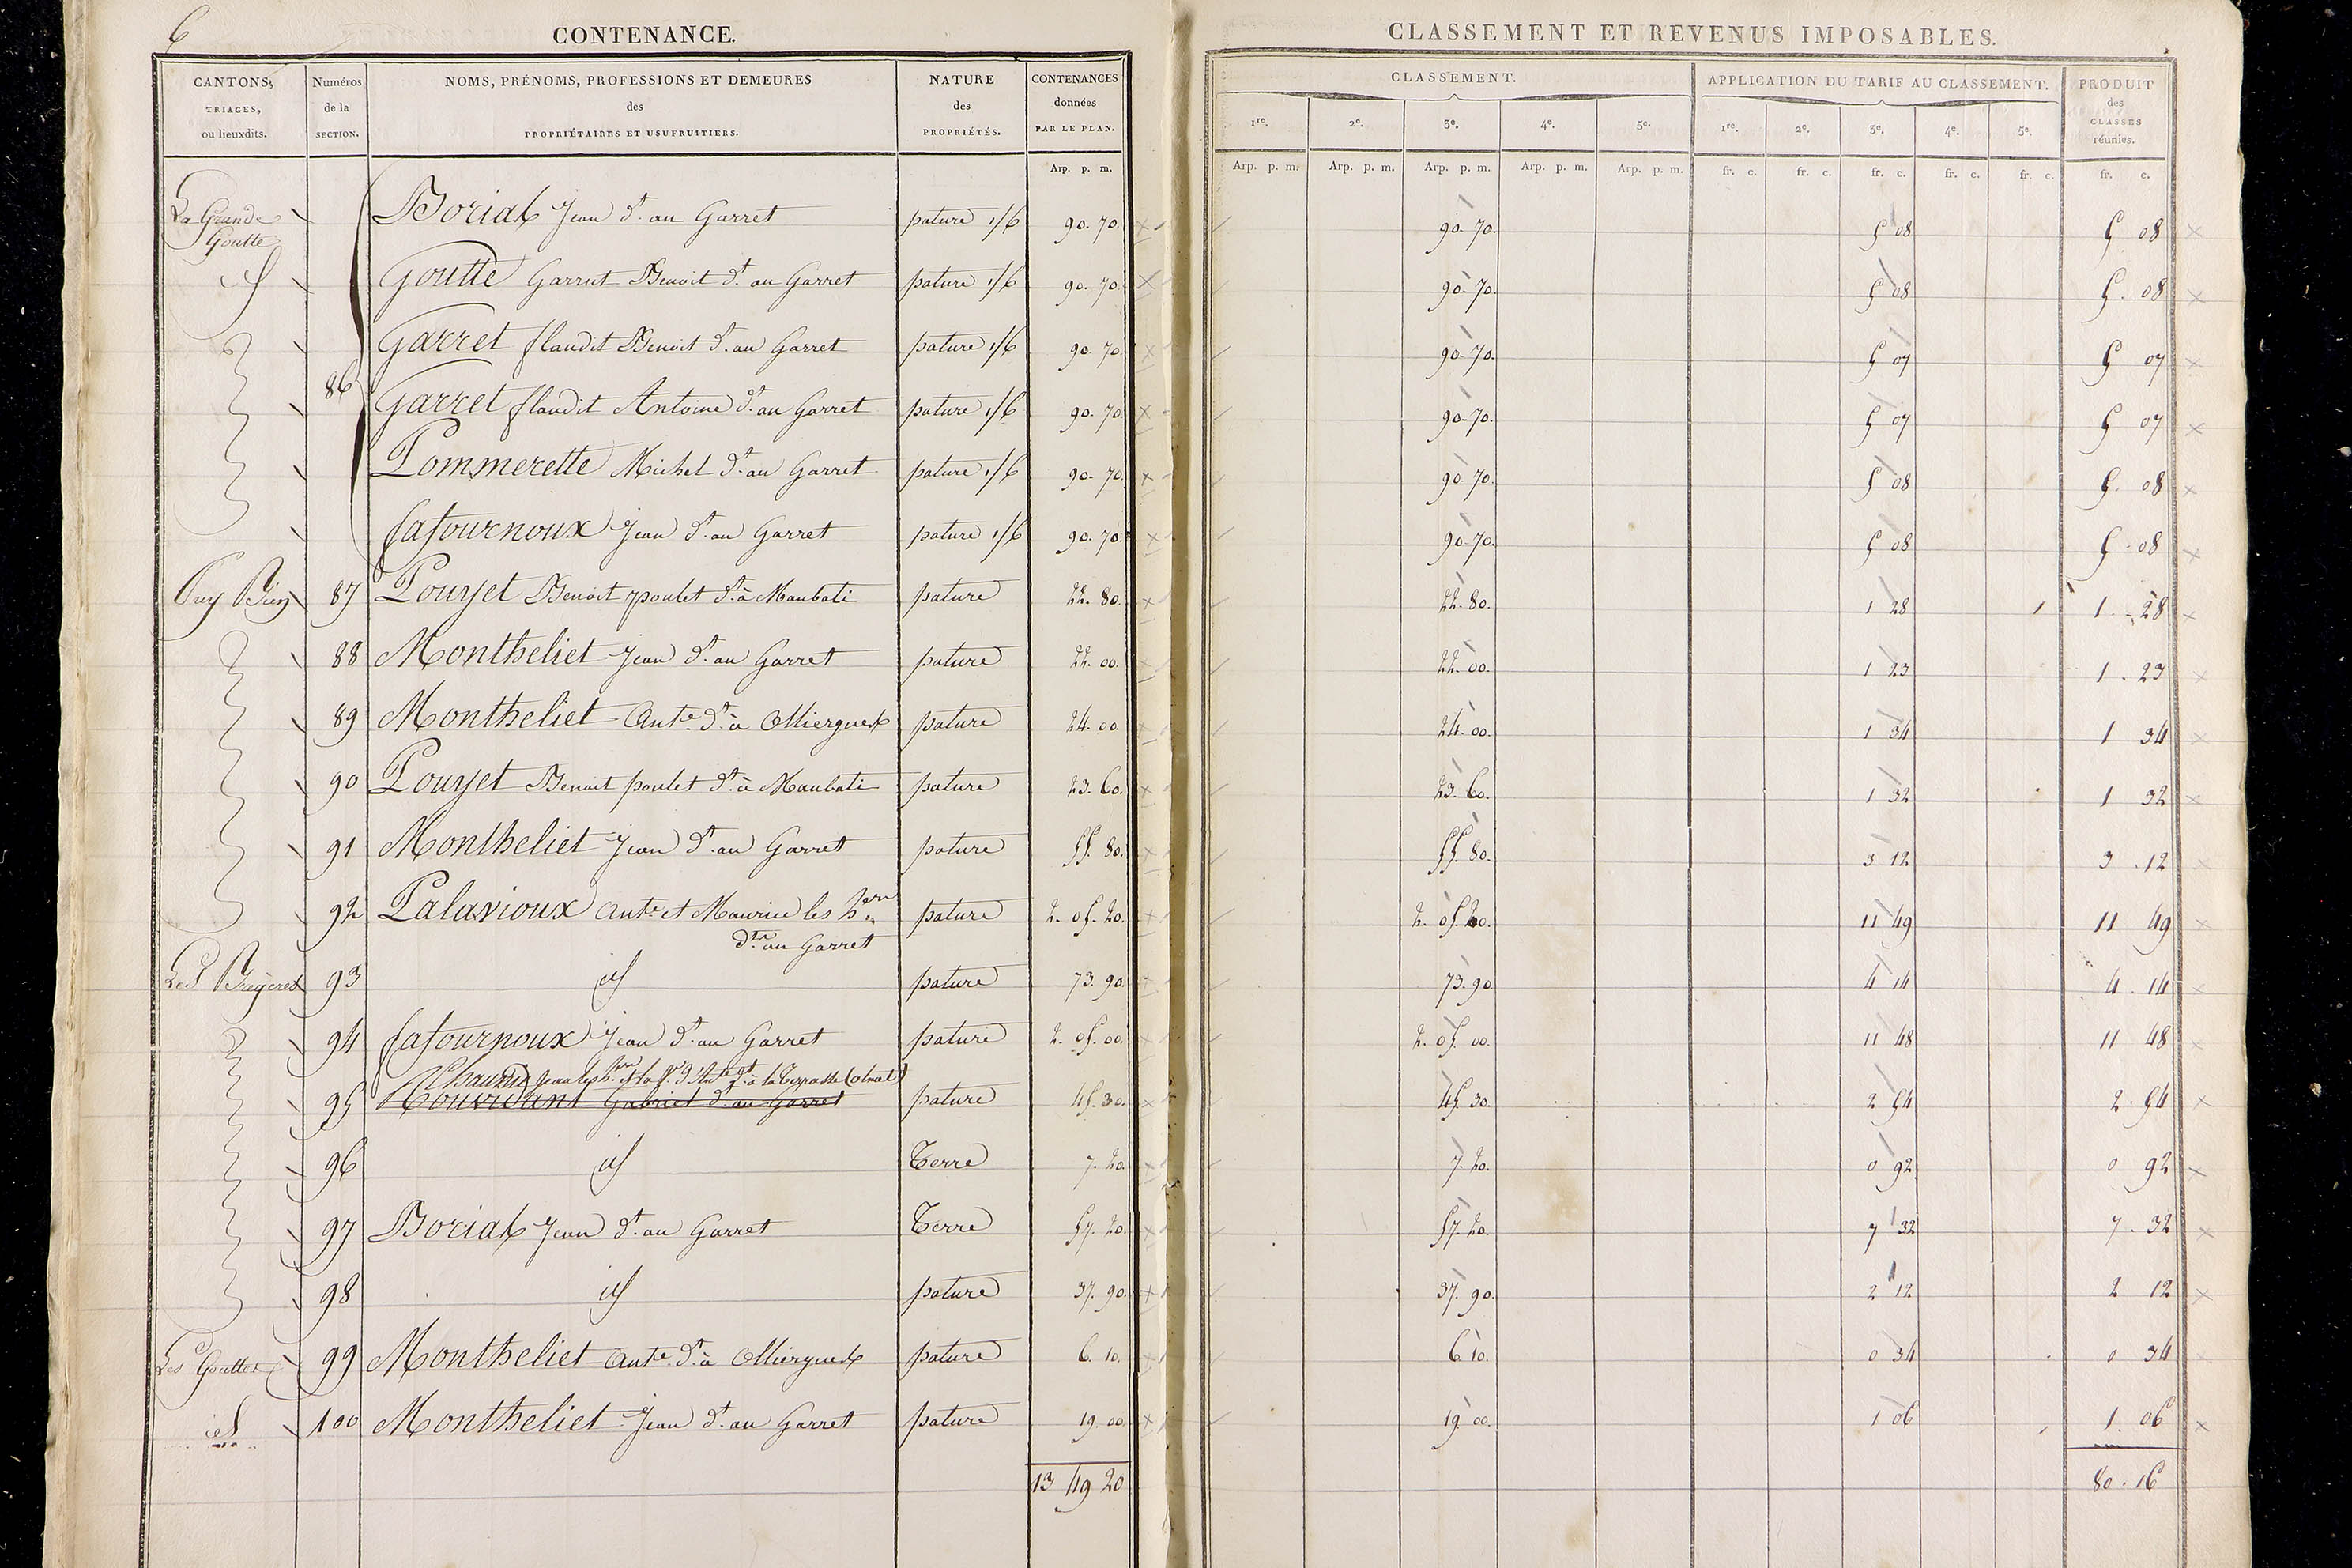 6
CONTENANCE.
CLASSEMENT ET REVENUS IMPOSABLES.
CANTONS, TRIAGES, ou lieuxdits.
Numéros de la SECTION.
NOMS, PRÉNOMS, PROFESSIONS ET DEMEURES des PROPRIÉTAIRES ET USUFRUITIERS.
NATURE des PROPRIÉTÉS.
CONTENANCES données PAR LE PLAN.
CLASSEMENT.
APPLICATION DU TARIF AU CLASSEMENT.
PRODUIT des CLASSES réunies.
1re. 2e. 3e. 4e. 5e. 1re. 2e. 3e. 4e. 5e.
Arp. p. m. Arp. p. m. Arp. p. m. Arp. p. m. Arp. p. m. Arp. p. m. fr. c. fr. c. fr. c. fr. c. fr. c. fr. c.
La Grande Goutte Borias Jean dt. au Garret pature 1/6 90. 70. 90. 70. 5 08 5 08
id Goutte Garrut Benoit dt. au Garret pature 1/6 90. 70. 90. 70. 5 08 5. 08
Garret flaudit Benoit dt. au Garret pature 1/6 90. 70. 90. 70. 5 07 5 07
86 Garret flaudit Antoine dt. au Garret pature 1/6 90. 70. 90. 70. 5 07 5 07
Pommerette Michel dt. au Garret pature 1/6 90. 70. 90. 70. 5 08 5. 08
Lafournoux Jean dt. au Garret pature 1/6 90. 70. 90. 70. 5 08 5. 08
Puy 87 Pouyet Benoit poulet dt. à Maubati pature 22. 80. 22. 80. 1 28 1. 28
88 Montheliet Jean dt. au Garret pature 22. 00. 22. 00. 1 23 1. 23
89 Montheliet Ante. dt. à Olliergues pature 24. 00. 24. 00. 1 34 1 34
90 Pouyet Benoit poulet dt. à Maubati pature 23. 60. 23. 60. 1 32 1 32
91 Montheliet Jean dt. au Garret pature 55. 80. 55. 80. 3 12 3. 12
92 Palavioux Ante. et Maurice les hers. pature 2. 05. 20. 2. 05. 20. 11 49 11 49
dts. au Garret
Les Bruyeres 93 id pature 73. 90. 73. 90 4 14 4. 14
94 Lafournoux Jean dt. au Garret pature 2. 05. 00. 2. 05. 00. 11 48 11 48
à la Terrasse (olmet)
95 Gabriel dt. au Garret pature 45. 30. 45. 30. 2 54 2. 54
96 id Terre 7. 20. 7. 20. 0 92 0 92
97 Borias Jean dt. au Garret Terre 57. 20. 57. 20. 7 32 7. 32
98 id pature 37. 90. 37. 90. 2 12 2 12
Les Gouttes 99 Montheliet Ante. dt. à Olliergues pature 6. 10. 6 10. 0 34 0 34
id 100 Montheliet Jean dt. au Garret pature 19. 00. 19. 00. 1 06 1. 06
13 49 20 80. 16